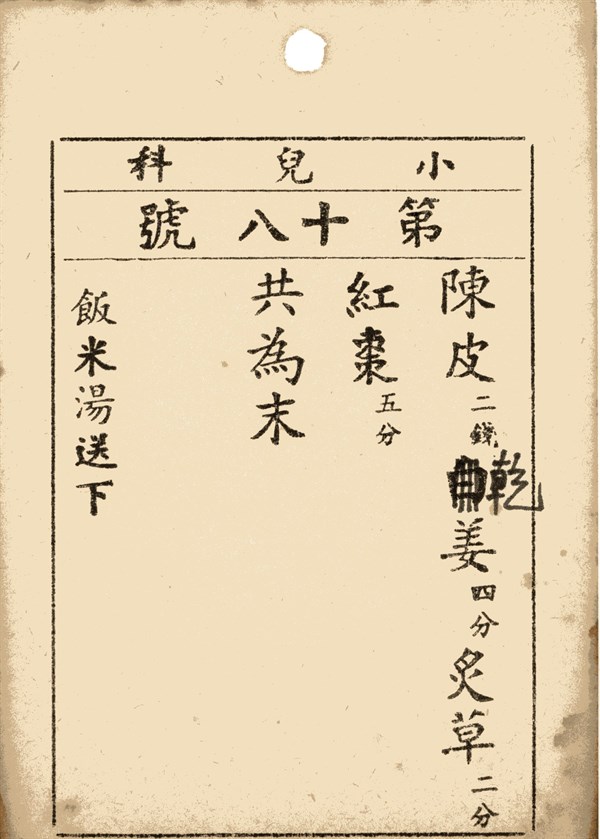 小兒科
第十八號
陳皮二錢乾姜四分炙草二分
紅棗五分
共為末
飯米湯送下